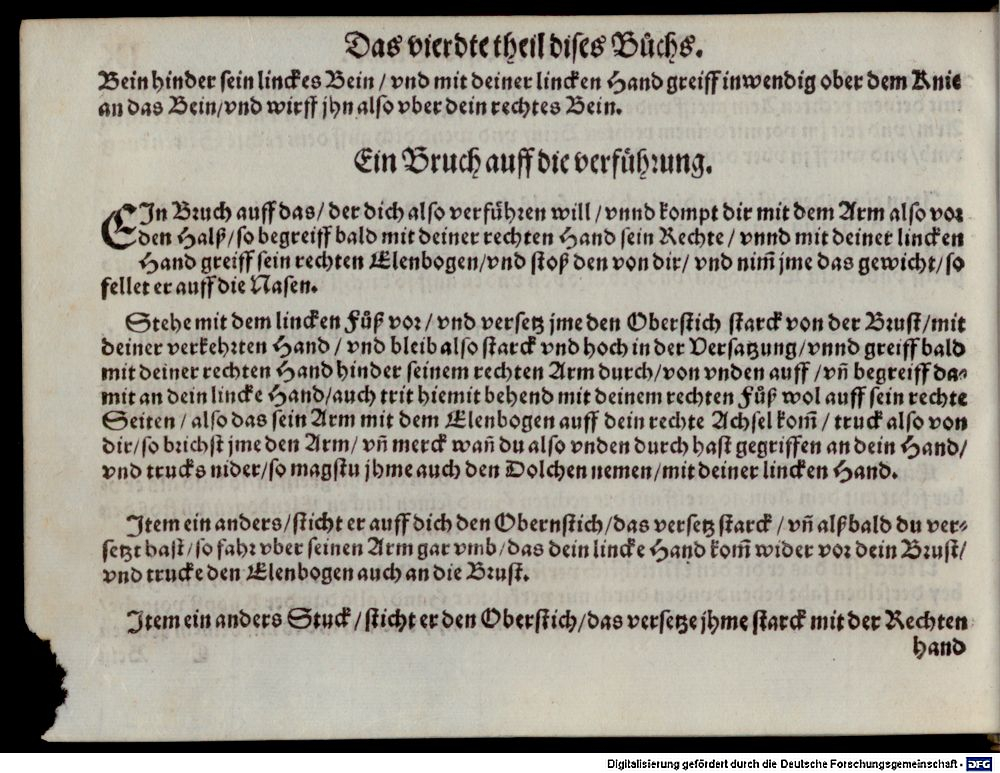 Das vierdte theil dises Bůchs.
Bein hinder sein linckes Bein / vnd mit deiner lincken Hand greiff inwendig ober dem Knie
an das Bein/vnd wirff jhn also vber dein rechtes Bein.
Ein Bruch auff die verfůhrung.
EIn Bruch auff das/ der dich also verfůhren will / vnnd kompt dir mit dem Arm also vor
den Halß/so begreiff bald mit deiner rechten Hand sein Rechte / vnnd mit deiner lincken
Hand greiff sein rechten Elenbogen/vnd stoß den von dir/ vnd nim̃ jme das gewicht/so
fellet er auff die Nasen.
Stehe mit dem lincken Fůß vor/ vnd versetz jme den Oberstich starck von der Brust/mit
deiner verkehrten Hand / vnd bleib also starck vnd hoch in der Versatzung/vnnd greiff bald
mit deiner rechten Hand hinder seinem rechten Arm durch/von vnden auff /vñ begreiff da⸗
mit an dein lincke Hand/auch trit hiemit behend mit deinem rechten Fůß wol auff sein rechte
Seiten / also das sein Arm mit dem Elenbogen auff dein rechte Achsel kom̃ / truck also von
dir/so brichst jme den Arm/ vñ merck wañ du also vnden durch hast gegriffen an dein Hand/
vnd trucks nider/so magstu jhme auch den Dolchen nemen/mit deiner lincken Hand.
Item ein anders/sticht er auff dich den Obernstich/das versetz starck / vñ alßbald du ver⸗
setzt hast/so fahr vber seinen Arm gar vmb/das dein lincke Hand kom̃ wider vor dein Brust/
vnd trucke den Elenbogen auch an die Brust.
Item ein anders Stuck/sticht er den Oberstich/das versetze jhme starck mit der Rechten
hand
Digitalisierung gefördert durch die Deutsche Forschungsgemeinschaft - DFG